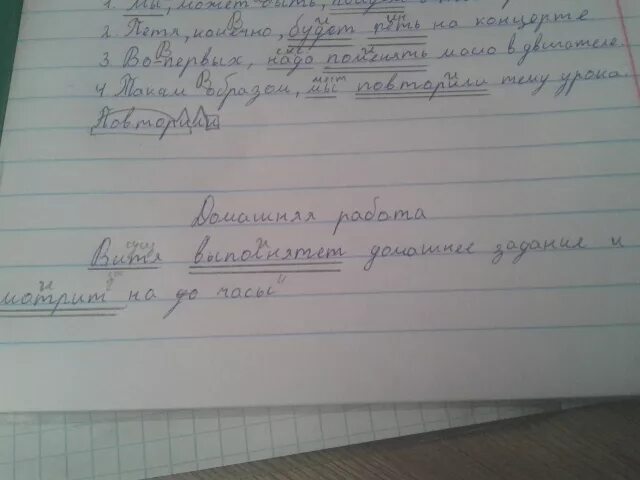 1. Мы, может быть, пойдем
2. Петя, конечно, будет петь на концерте
3. Во-первых, надо поменять масло в двигателе.
4. Таким образом, мы повторили тему урока.
Повторили
Домашняя работа
Витя выполнятет домашнее задание и
мотрит на до часы